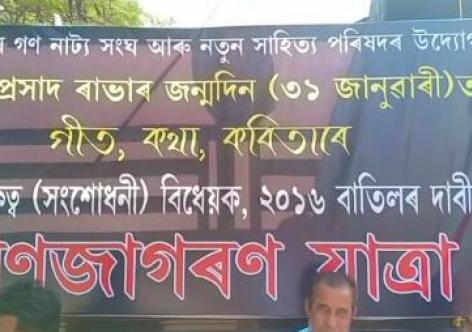 গণ নাট্য সংঘ আৰু নতুন সাহিত্য পৰিষদৰ উদ্যোগ
প্ৰসাদ ৰাভাৰ জন্মদিন (৩১ জানুৱাৰী)ত
গীত, কথা, কবিতাৰে
কত্ব (সংশোধনী) বিধেয়ক, ২০১৬ বাতিলৰ দাবী
ণজাগৰণ যাত্ৰা